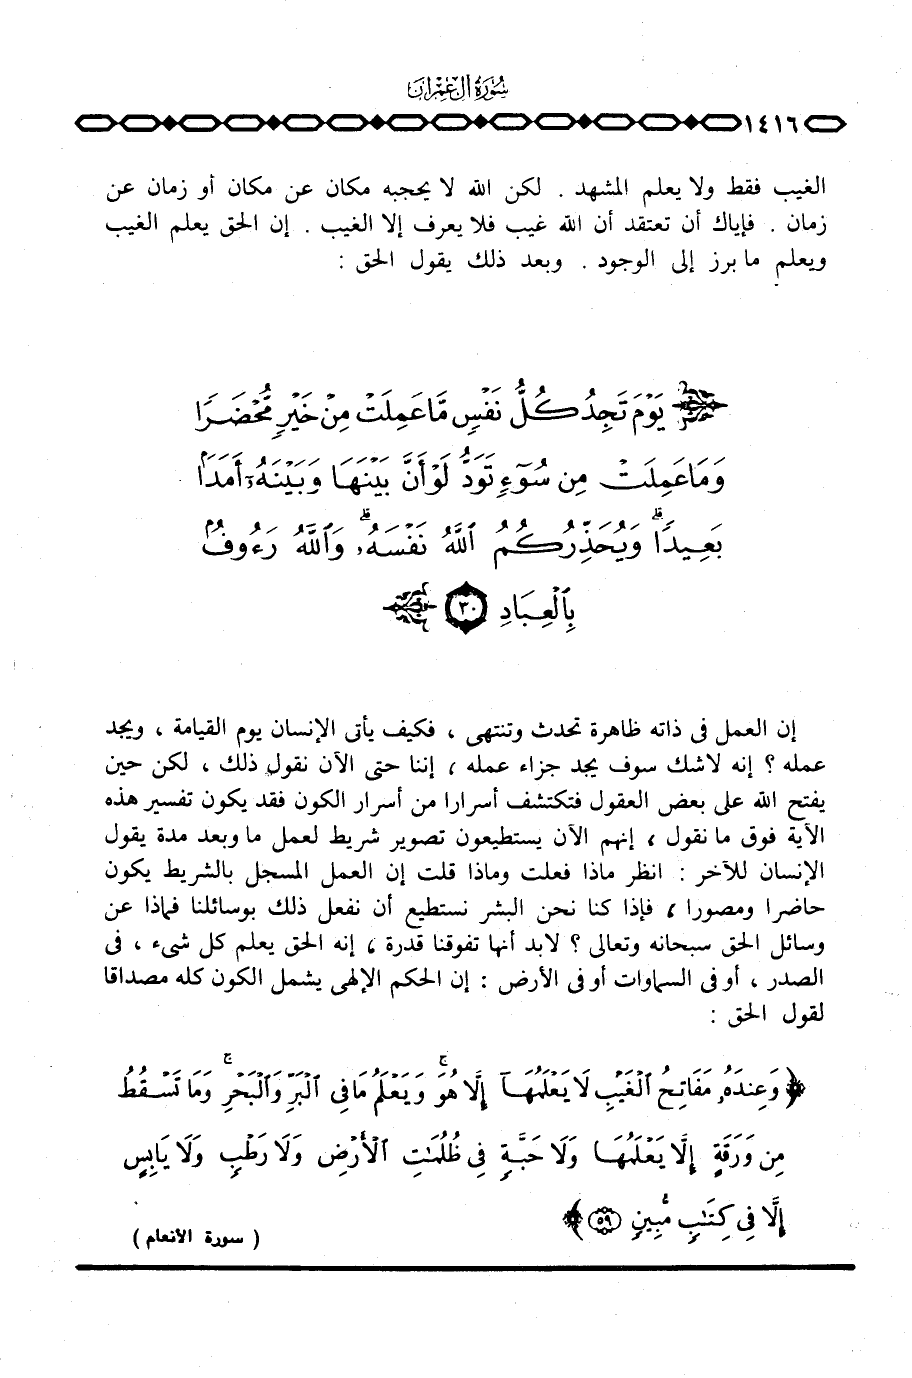 سُورَةُ آلِ عِمْرَانَ
١٤١٦
الغيب فقط ولا يعلم المشهد . لكن الله لا يحجبه مكان عن مكان أو زمان عن
زمان . فإياك أن تعتقد أن الله غيب فلا يعرف إلا الغيب . إن الحق يعلم الغيب
ويعلم ما برز إلى الوجود . وبعد ذلك يقول الحق :
يَوْمَ تَجِدُ كُلُّ نَفْسٍ مَّا عَمِلَتْ مِنْ خَيْرٍ مُّحْضَرًا
وَمَا عَمِلَتْ مِن سُوٓءٍ تَوَدُّ لَوْ أَنَّ بَيْنَهَا وَبَيْنَهُۥٓ أَمَدًۢا
بَعِيدًا ۗ وَيُحَذِّرُكُمُ ٱللَّهُ نَفْسَهُۥ ۗ وَٱللَّهُ رَءُوفٌۢ
بِٱلْعِبَادِ ٣٠
إن العمل فى ذاته ظاهرة تحدث وتنتهى ، فكيف يأتى الإنسان يوم القيامة ، ويجد
عمله ؟ إنه لاشك سوف يجد جزاء عمله ، إننا حتى الآن نقول ذلك ، لكن حين
يفتح الله على بعض العقول فتكتشف أسرارا من أسرار الكون فقد يكون تفسير هذه
الآية فوق ما نقول ، إنهم الآن يستطيعون تصوير شريط لعمل ما وبعد مدة يقول
الإنسان للآخر : انظر ماذا فعلت وماذا قلت إن العمل المسجل بالشريط يكون
حاضرا ومصورا ، فإذا كنا نحن البشر نستطيع أن نفعل ذلك بوسائلنا فماذا عن
وسائل الحق سبحانه وتعالى ؟ لابد أنها تفوقنا قدرة ، إنه الحق يعلم كل شىء ، فى
الصدر ، أو فى السماوات أو فى الأرض : إن الحكم الإلهى يشمل الكون كله مصداقا
لقول الحق :
﴿ وَعِندَهُۥ مَفَاتِحُ ٱلْغَيْبِ لَا يَعْلَمُهَآ إِلَّا هُوَ ۚ وَيَعْلَمُ مَا فِى ٱلْبَرِّ وَٱلْبَحْرِ ۚ وَمَا تَسْقُطُ
مِن وَرَقَةٍ إِلَّا يَعْلَمُهَا وَلَا حَبَّةٍ فِى ظُلُمَٰتِ ٱلْأَرْضِ وَلَا رَطْبٍ وَلَا يَابِسٍ
إِلَّا فِى كِتَٰبٍ مُّبِينٍ ٥٩ ﴾
( سورة الأنعام )